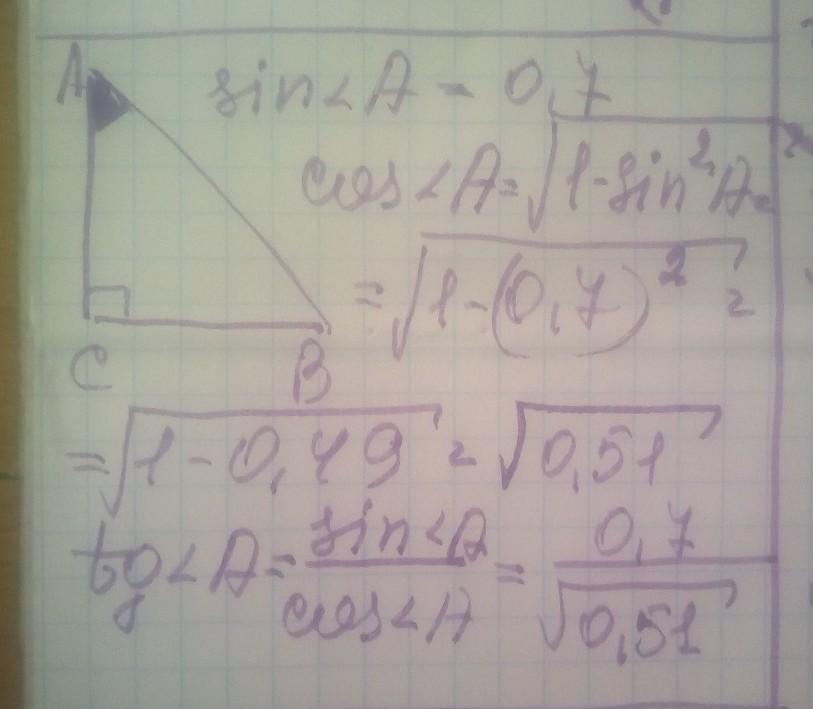 A
sin<A = 0,7
cos<A=√1-sin²A=
=√1-(0,7)² =
C B
=√1-0,49 = √0,51
tg<A= sin<A / cos<A = 0,7 / √0,51